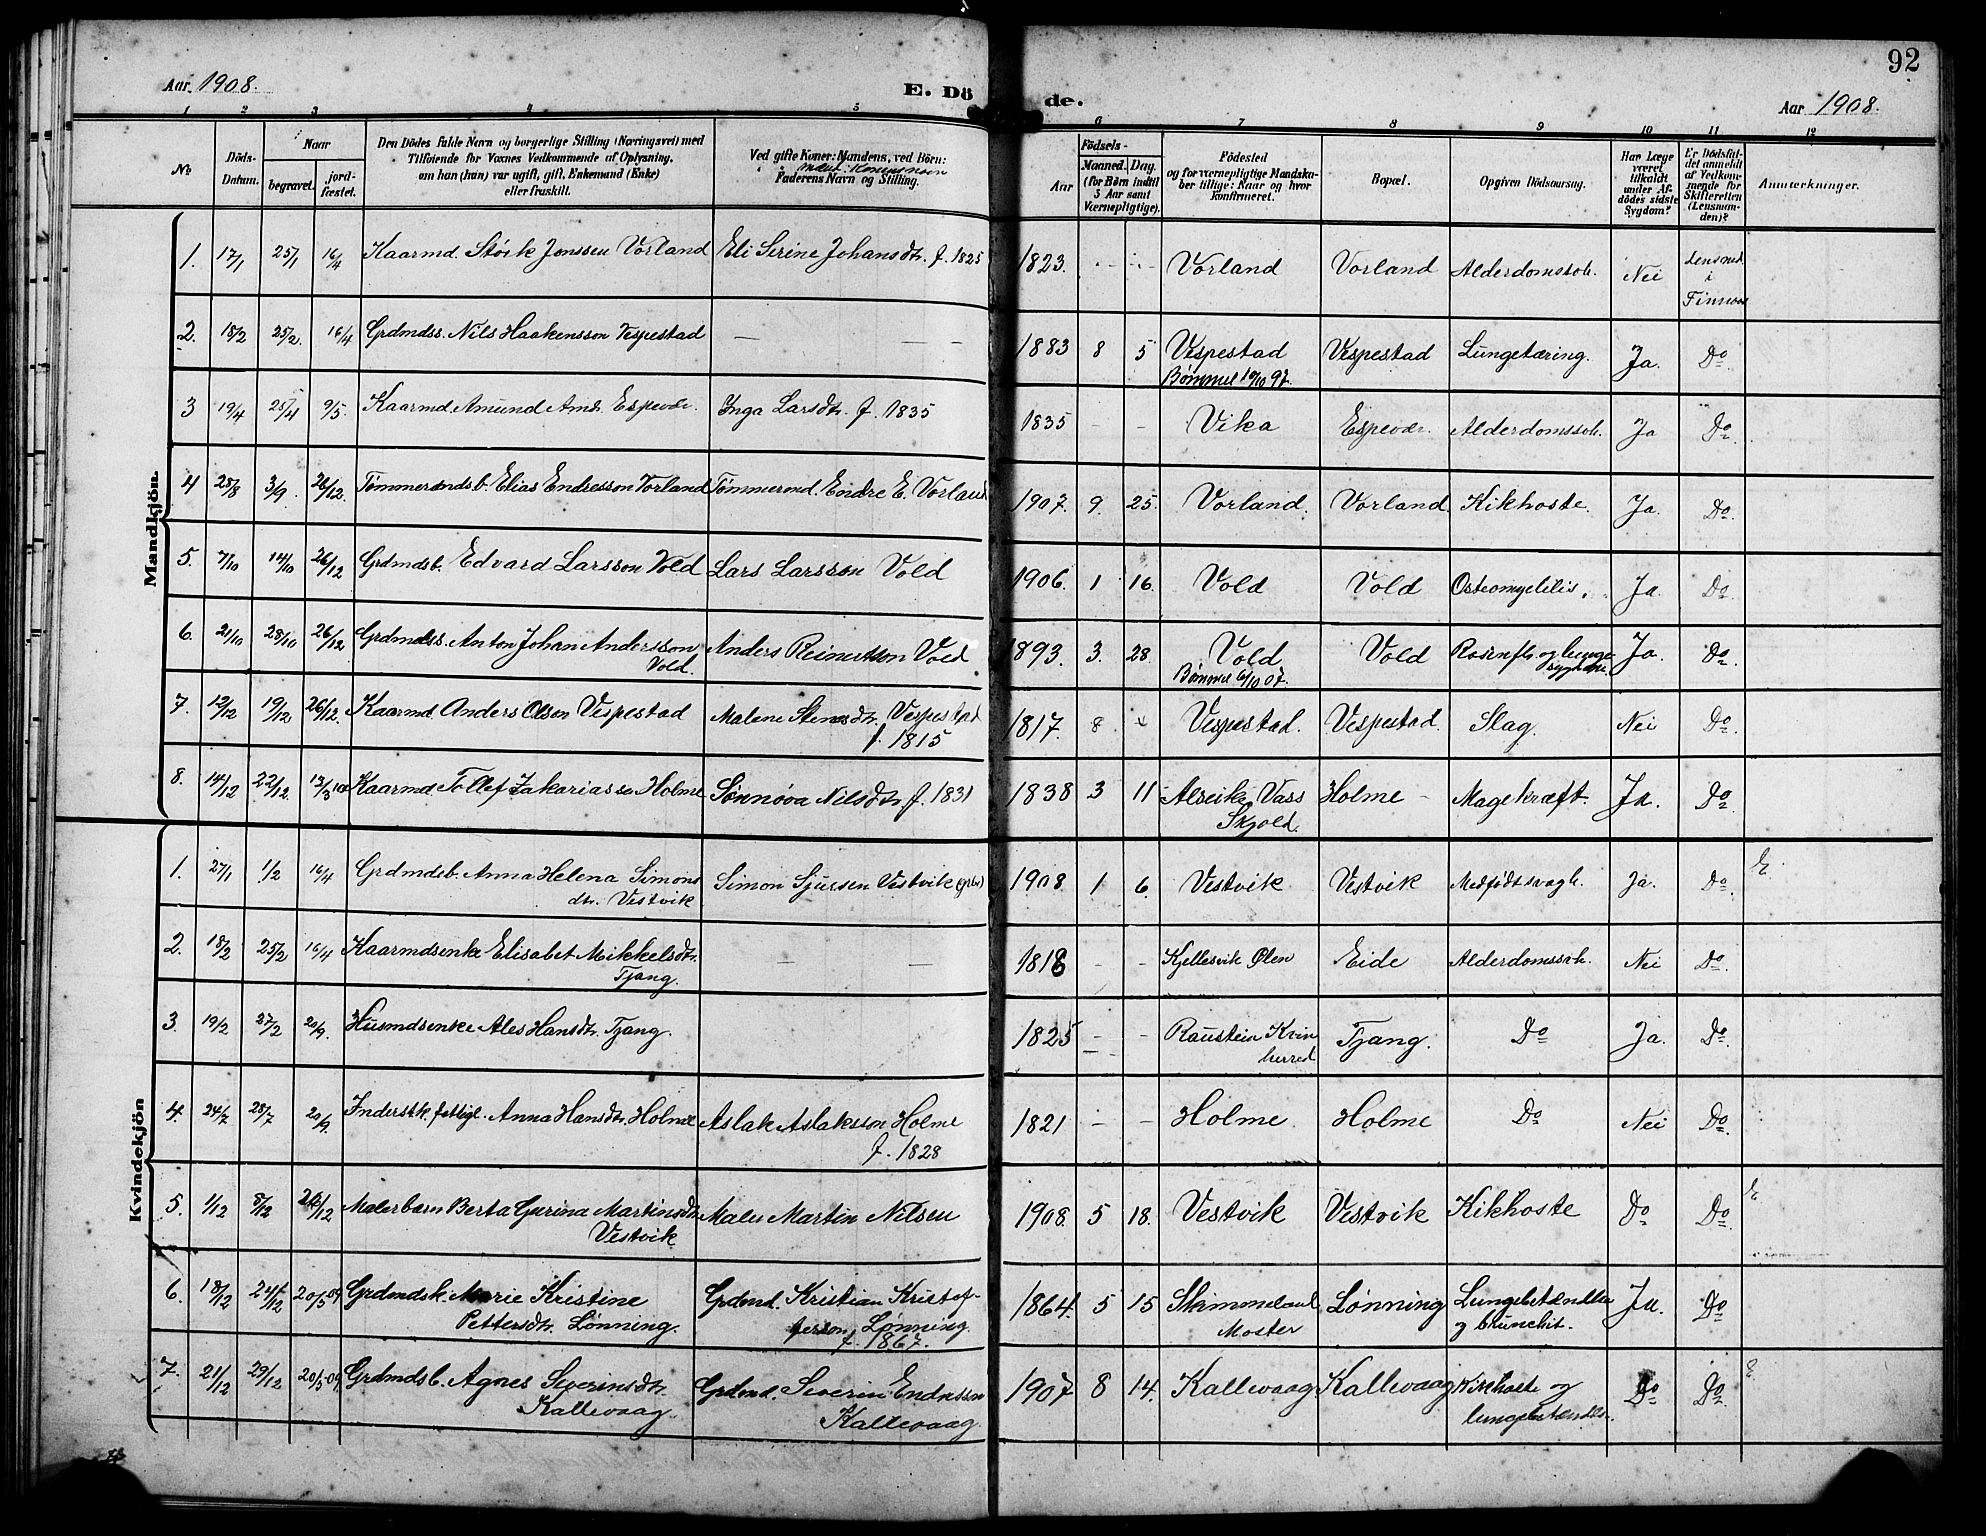 92
Aar 1908.
E. Dö
de.
Aar 1908.
1 2 3 4 5 6 7 8 9 10 11 12
No
Döds-Datum.
Naar
begravet.
jord-fæstet.
Den Dödes fulde Navn og borgerlige Stilling (Næringsvei) med
Tilføiende for Voxnes Vedkommende af Oplysning,
om han (hun) var ugift, gift, Enkemand (Enke)
eller fraskilt.
Ved gifte Koner: Mandens, ved Börn:
Faderens Navn og Stilling.
Födsels-
Aar
Maaned. Dag.
(for Børn indtil
5 Aar samt
Værnepligtige).
Födested
og for værnepligtige Mandska-
ber tillige: Naar og hvor
konfirmeret.
Bopæl.
Opgiven Dödsaarsag.
Har Læge
været
tilkaldt
under Af-
dödes sidste
Sygdom?
Er Dödsfal-
det anmeldt
af Vedkom-
mende for
Skifteretten
(Lensman-
den)?
Anmærkninger.
Mandkjön.
1. 17/1 25/1 16/4 Kaarmd. Størk Jonssen Vorland Eli Serine Johansdtr. f. 1825 1823. Vorland Vorland Alderdomssvh. Nei lensmd. i Finnaas
2. 18/2 25/2. 16/4 Grdmdss. Nils Haakensson Vespestad — — 1883 8 5 Vespestad Vespestad Lungetæring. Ja. Do
Bømmel 10/10 97.
3 19/4 25/4 9/5. Kaarmd. Amund Ams. Espevær. Inga Larsdtr. f. 1835 1835 - - Vika Espevær. Alderdomssvh. Ja Do
4 28/8 3/9. 26/12. Tømmermdsb. Elias Endresson Vorland Tømmermd. Endre E. Vorland 1907. 9. 25. Vorland. Vorland. Kikhoste. Ja. Do
5. 7/10 14/10 26/12 Grdmdsb. Edvard Larsson Vold Lars Larsson Vold 1906. 1 16. Vold Vold Osteomyelitis. Ja. Do
6. 21/10 28/10 26/12 Grdmdss. Anton Johan Andersson Anders Reinertsson Vold 1893. 3. 28. Vold Vold Rosenfb. og lunge Ja. Do
Vold. Bømmel 6/10 07. sygdom.
7. 12/12 19/12 26/12. Kaarmd. Anders Olsen Vespestad Malene Stensdtr. Vespestad 1817. 8 Vespestad. Vespestad. Slag. Nei Do
f. 1815
8. 14/12 22/12. 13/3 Kaarmd. Tollef Zakariass. Holme Sønnøva Nilsdtr f. 1831 1838 3 11 Alseike Vass Holme - Mavekræft. Ja. Do
Skjold.
Kvindekjön
1. 27/1 1/2 16/4 Grdmdsb. Anna Helena Simons Simon Sjursen Vestvik 1908. 1 6. Vestvik Vestvik Medfødt svagh. Ja. Do
dtr. Vestvik
2. 18/2 25/2 16/4 Kaarmdsenke Elisabet Mikkelsdtr. — — 1818 - - Kjellesvik Ølen Eide Alderdomssvh. Nei Do
Tjang.
3. 19/2 27/2 20/9. Husmdsenke Ales Hansdtr. Tjang. 1825 - - Raustein Kvin Tjang. Do Ja. Do
herred
4. 24/7 28/7 20/9. Inderstk. fattigl. Anna Hansdtr. Holme Aslak Aslaksson Holme 1821 - - Holme. Holme Do Nei Do
f. 1828
5. 1/12 8/12 26/12 Malerbarn Berta Gurina Martinsdtr. Maler Martin Nilsen 1908. 5 18. Vestvik Vestvik Kikhoste Do Do
Vestvik
6. 18/12 24/12 20/5 09 Grdmdsk. Marie Kristine Grdmd. Kristian Kristof- 1864. 5 15 Skimmeland Lønning Lungebetændelse Ja. Do
Pettersdtr. Lønning. ferson. Lønning. Moster og brunchit.
f. 1867.
7. 21/12 29/12 20/5 09 Grdmdsb. Agnes Severinsdtr. Grdmd. Severin Endresson 1907 8 14. Kallevaag Kallevaag Kikhoste og Do Do
Kallevaag. Kallevaag. lungebetændelse.